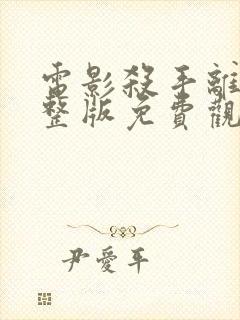 電影殺手離
整版免費觀
尹愛平